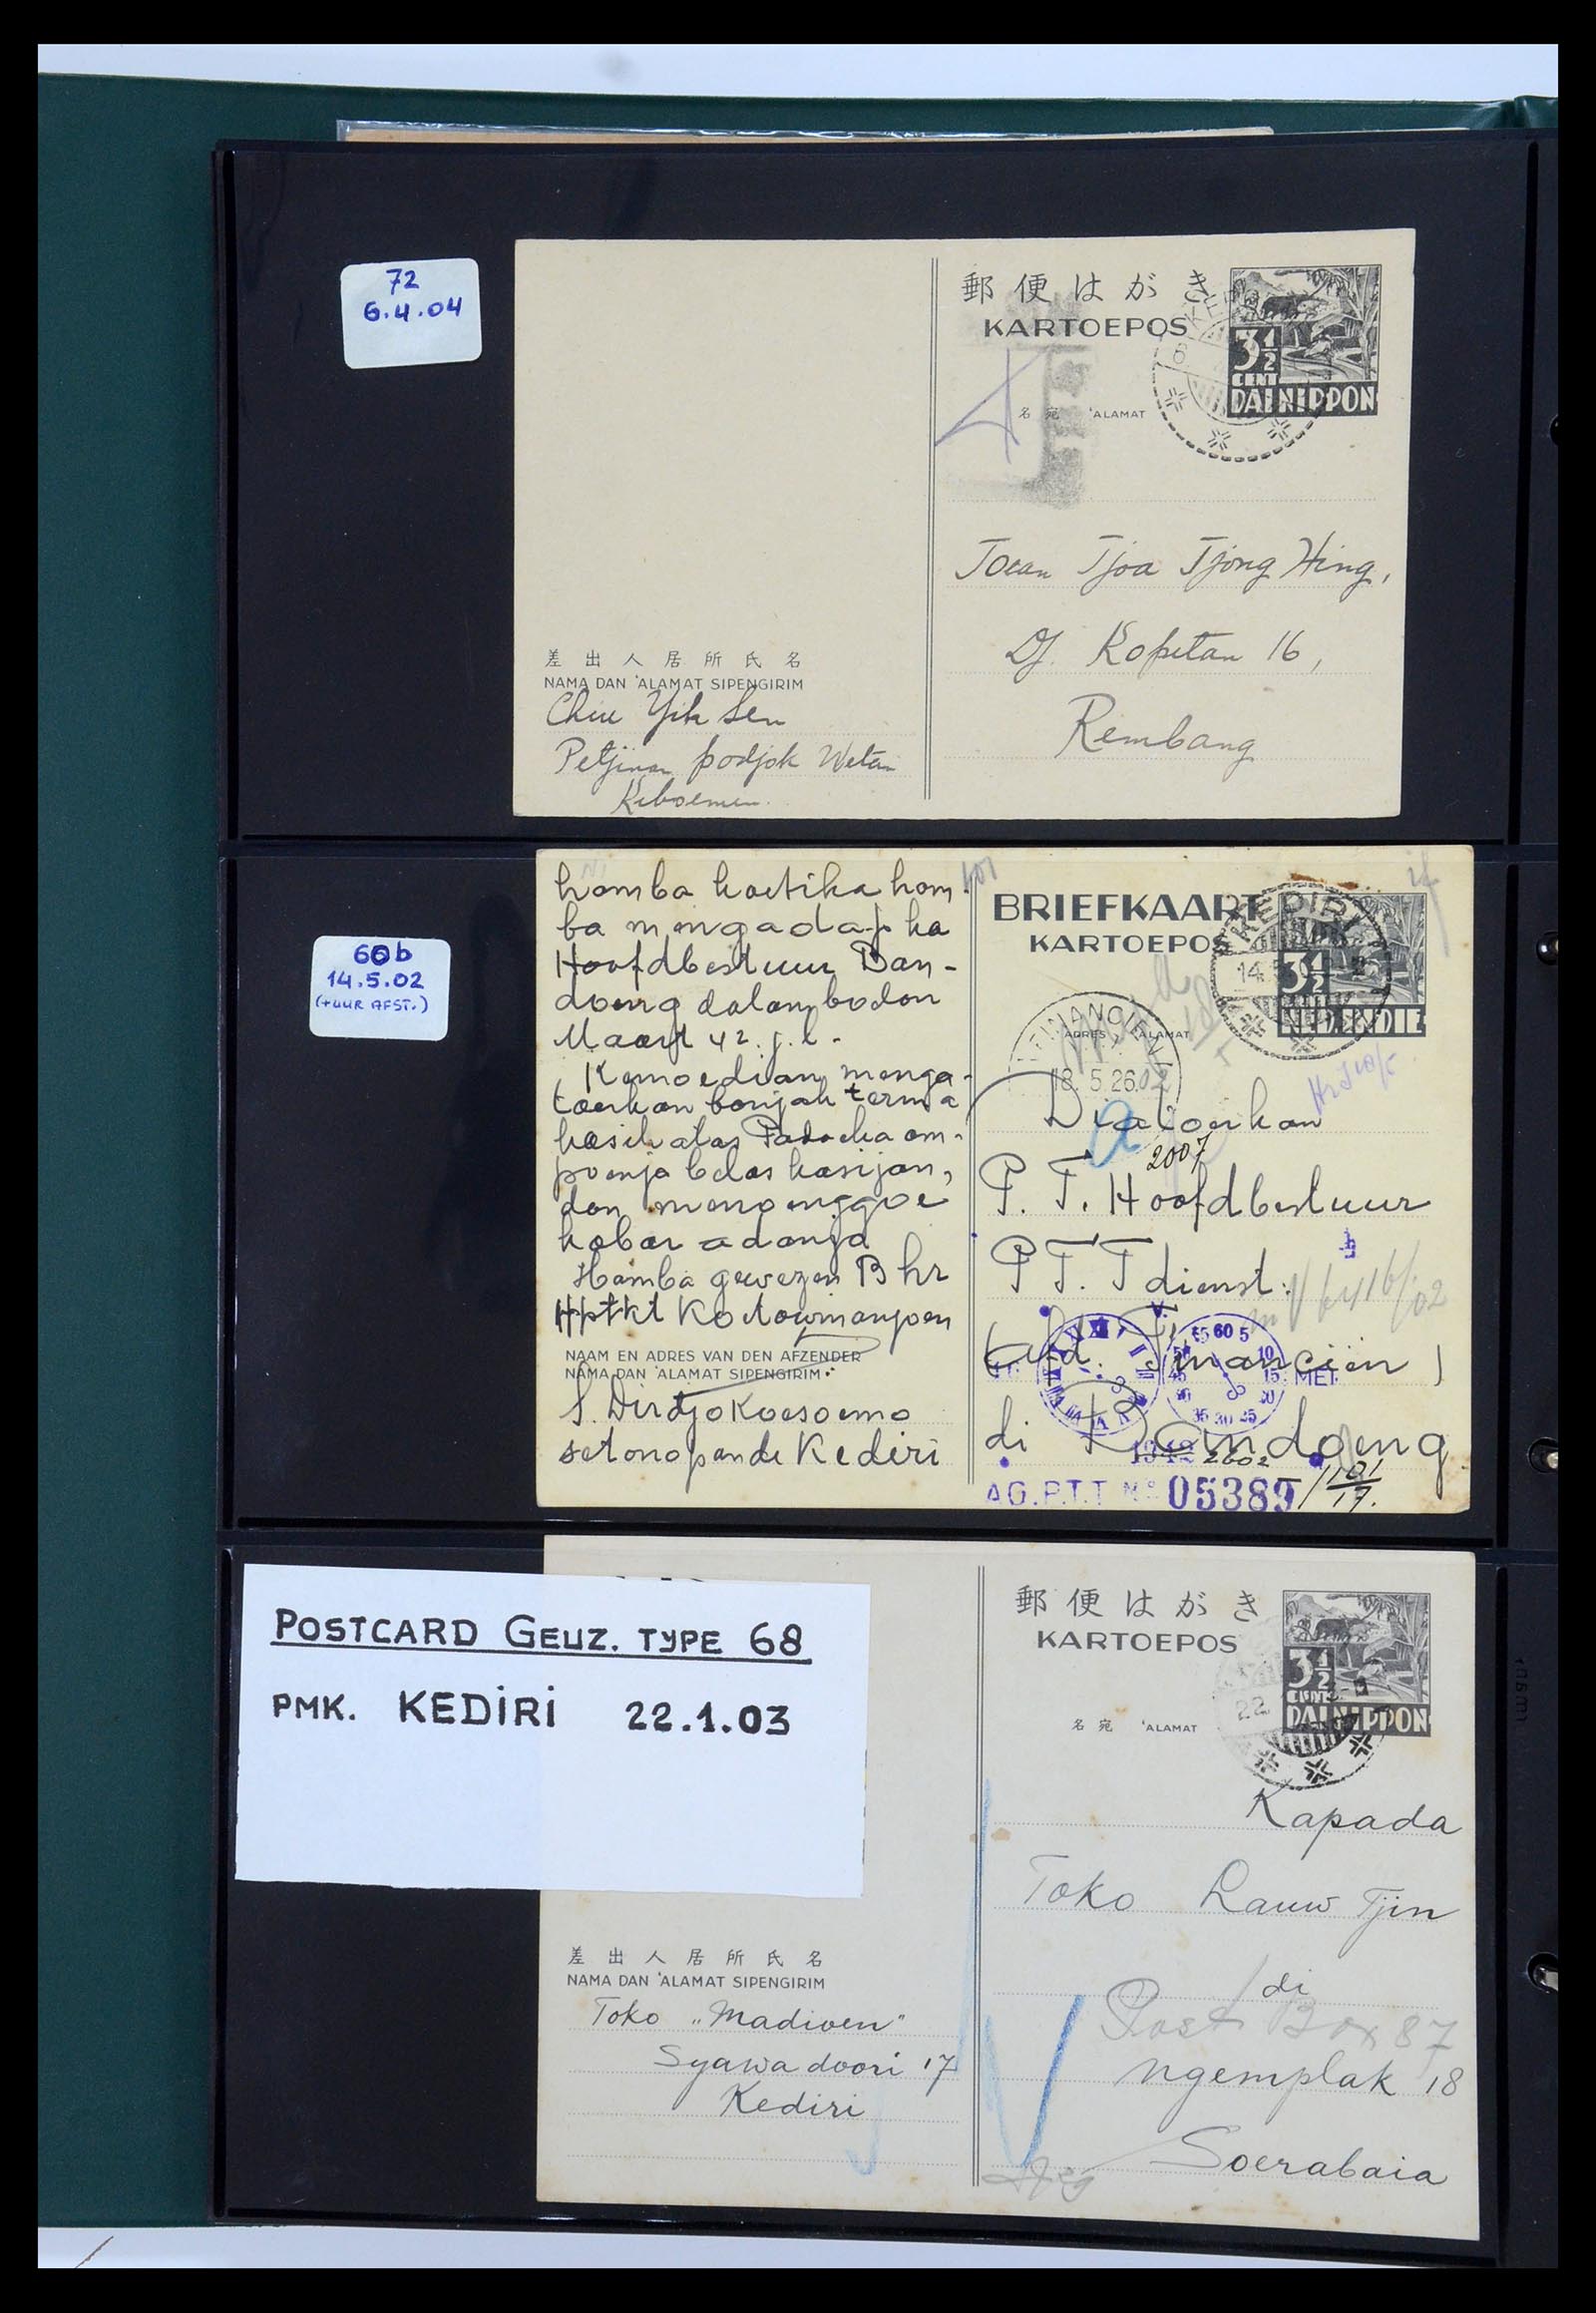 72
6.4.04
郵便はがき
KARTOEPOS
3½
CENT
DAI NIPPON
名宛 'ALAMAT
Toean Tjoa Tjong Hing,
Dj. Kopitan 16,
Rembang
差出人居所氏名
NAMA DAN 'ALAMAT SIPENGIRIM
Chiu Yik Sen
Petjinan podjok Wetan
Keboemen.
60b
14.5.02
(+UUR AFST.)
hamba koetika ham-
ba mengadap ka
Hoofdbestuur Ban-
doeng dalam boelan
Maart 42. j.l.
Kemoedian menga-
toerkan banjak terima
kasih atas Padoeka am-
poenja belas kasijan,
dan menoenggoe
kabar adanja
Hamba gewezen B hr
Hptkt Kertowinangoen
NAAM EN ADRES VAN DEN AFZENDER
NAMA DAN 'ALAMAT SIPENGIRIM
S. Dirdjokoesoemo
setonopande Kediri
101
BRIEFKAART
KARTOEPOS
KEDIRI
14
3½
NED. INDIE
FINANCIEN
ADRES 'ALAMAT
18.5.26.02
Diatoerkan
2007
P. T. Hoofdbestuur
P T. T dienst.
afd. Financiën
60 5
10
15
MEI
di Bandoeng
1942 2602
AG.P.T.T No 05389 / 1101
17.
POSTCARD GEUZ. TYPE 68
PMK. KEDIRI 22.1.03
郵便はがき
KARTOEPOS
22
3½
CENT
DAI NIPPON
名宛 'ALAMAT
Kapada
Toko Lauw Tjin
di
Post Box 87
Ngemplak 18
Soerabaia
差出人居所氏名
NAMA DAN 'ALAMAT SIPENGIRIM
Toko „Madioen"
Syawa doori 17
Kediri